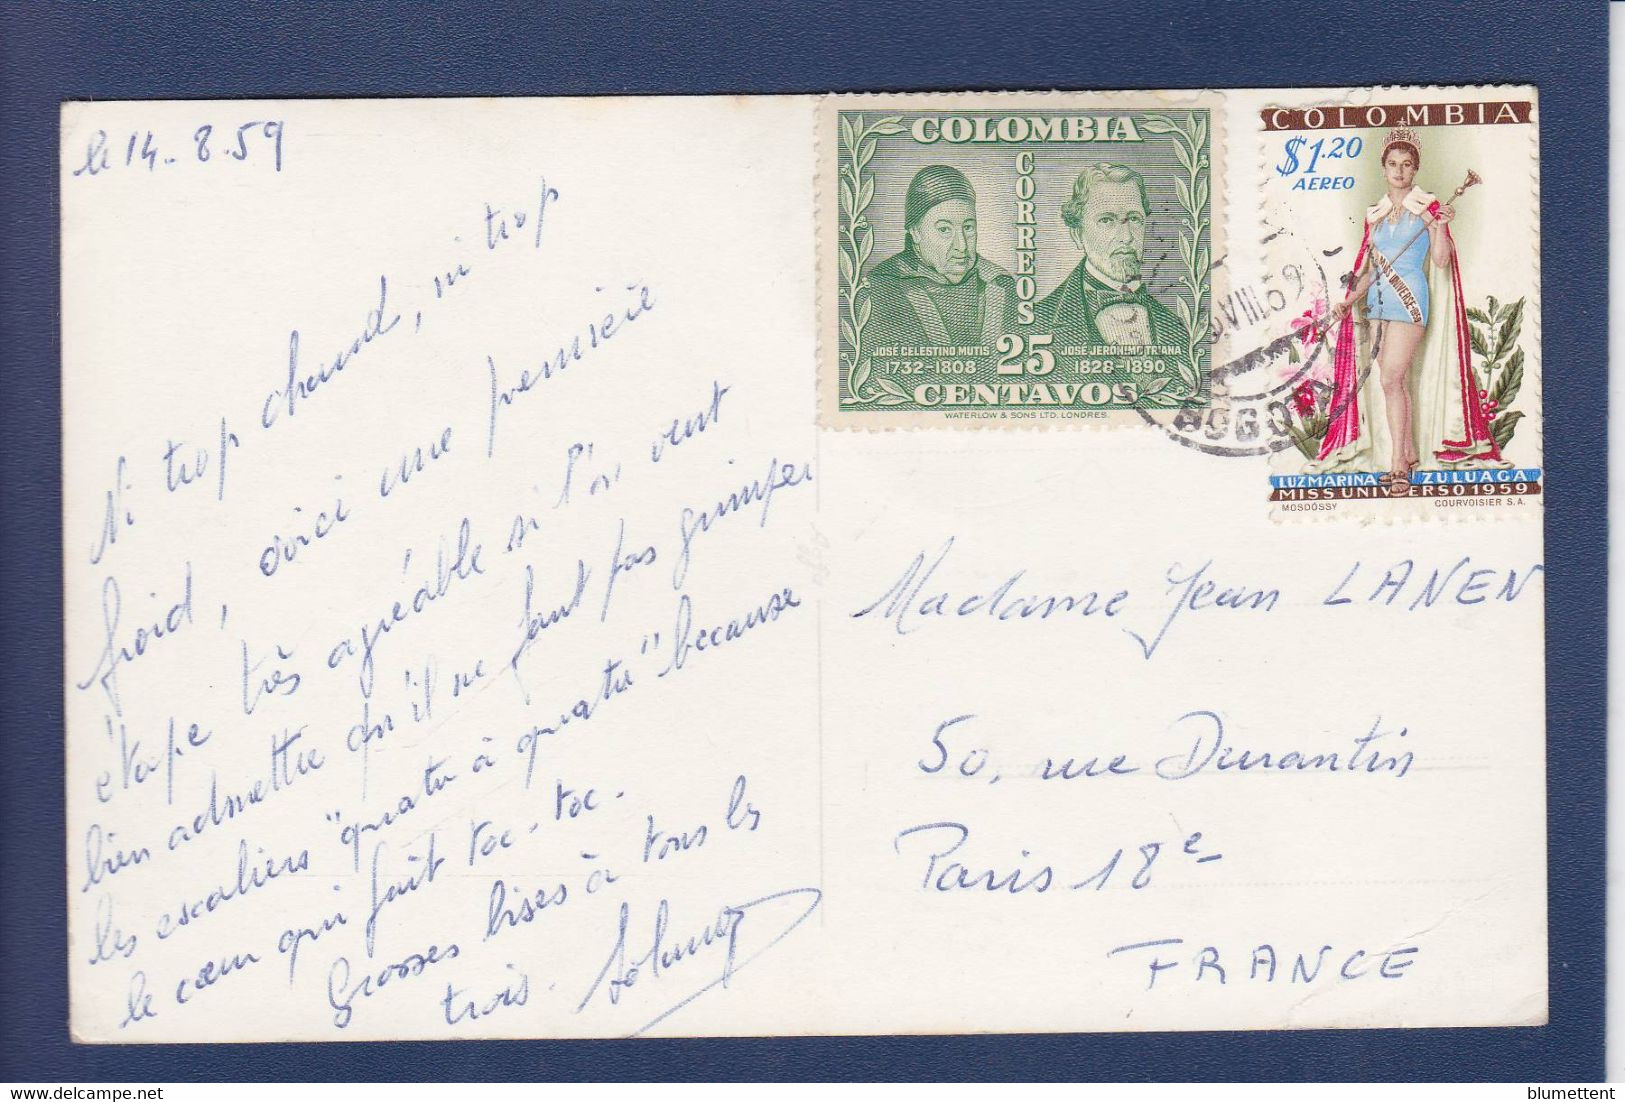 le 14. 8. 59
Ni trop chaud, ni trop
froid, voici une première
étape très agréable si l'on veut
bien admettre qu'il ne faut pas grimper
les escaliers "quatre à quatre" because
le cœur qui fait toc-toc.
Grosses bises à tous les
trois.
COLOMBIA
CORREOS
JOSÉ CELESTINO MUTIS
1732-1808
25
JOSÉ JERÓNIMO TRIANA
1828-1890
CENTAVOS
WATERLOW & SONS LTD. LONDRES.
COLOMBIA
$1.20
AEREO
MISS UNIVERSE-1959
LUZ MARINA ZULUAGA
MISS UNIVERSO 1959
MOSDÓSSY COURVOISIER S.A.
VIII 59
BOGOTA
Madame Jean LANEN
50, rue Durantin
Paris 18e
FRANCE
blumettent